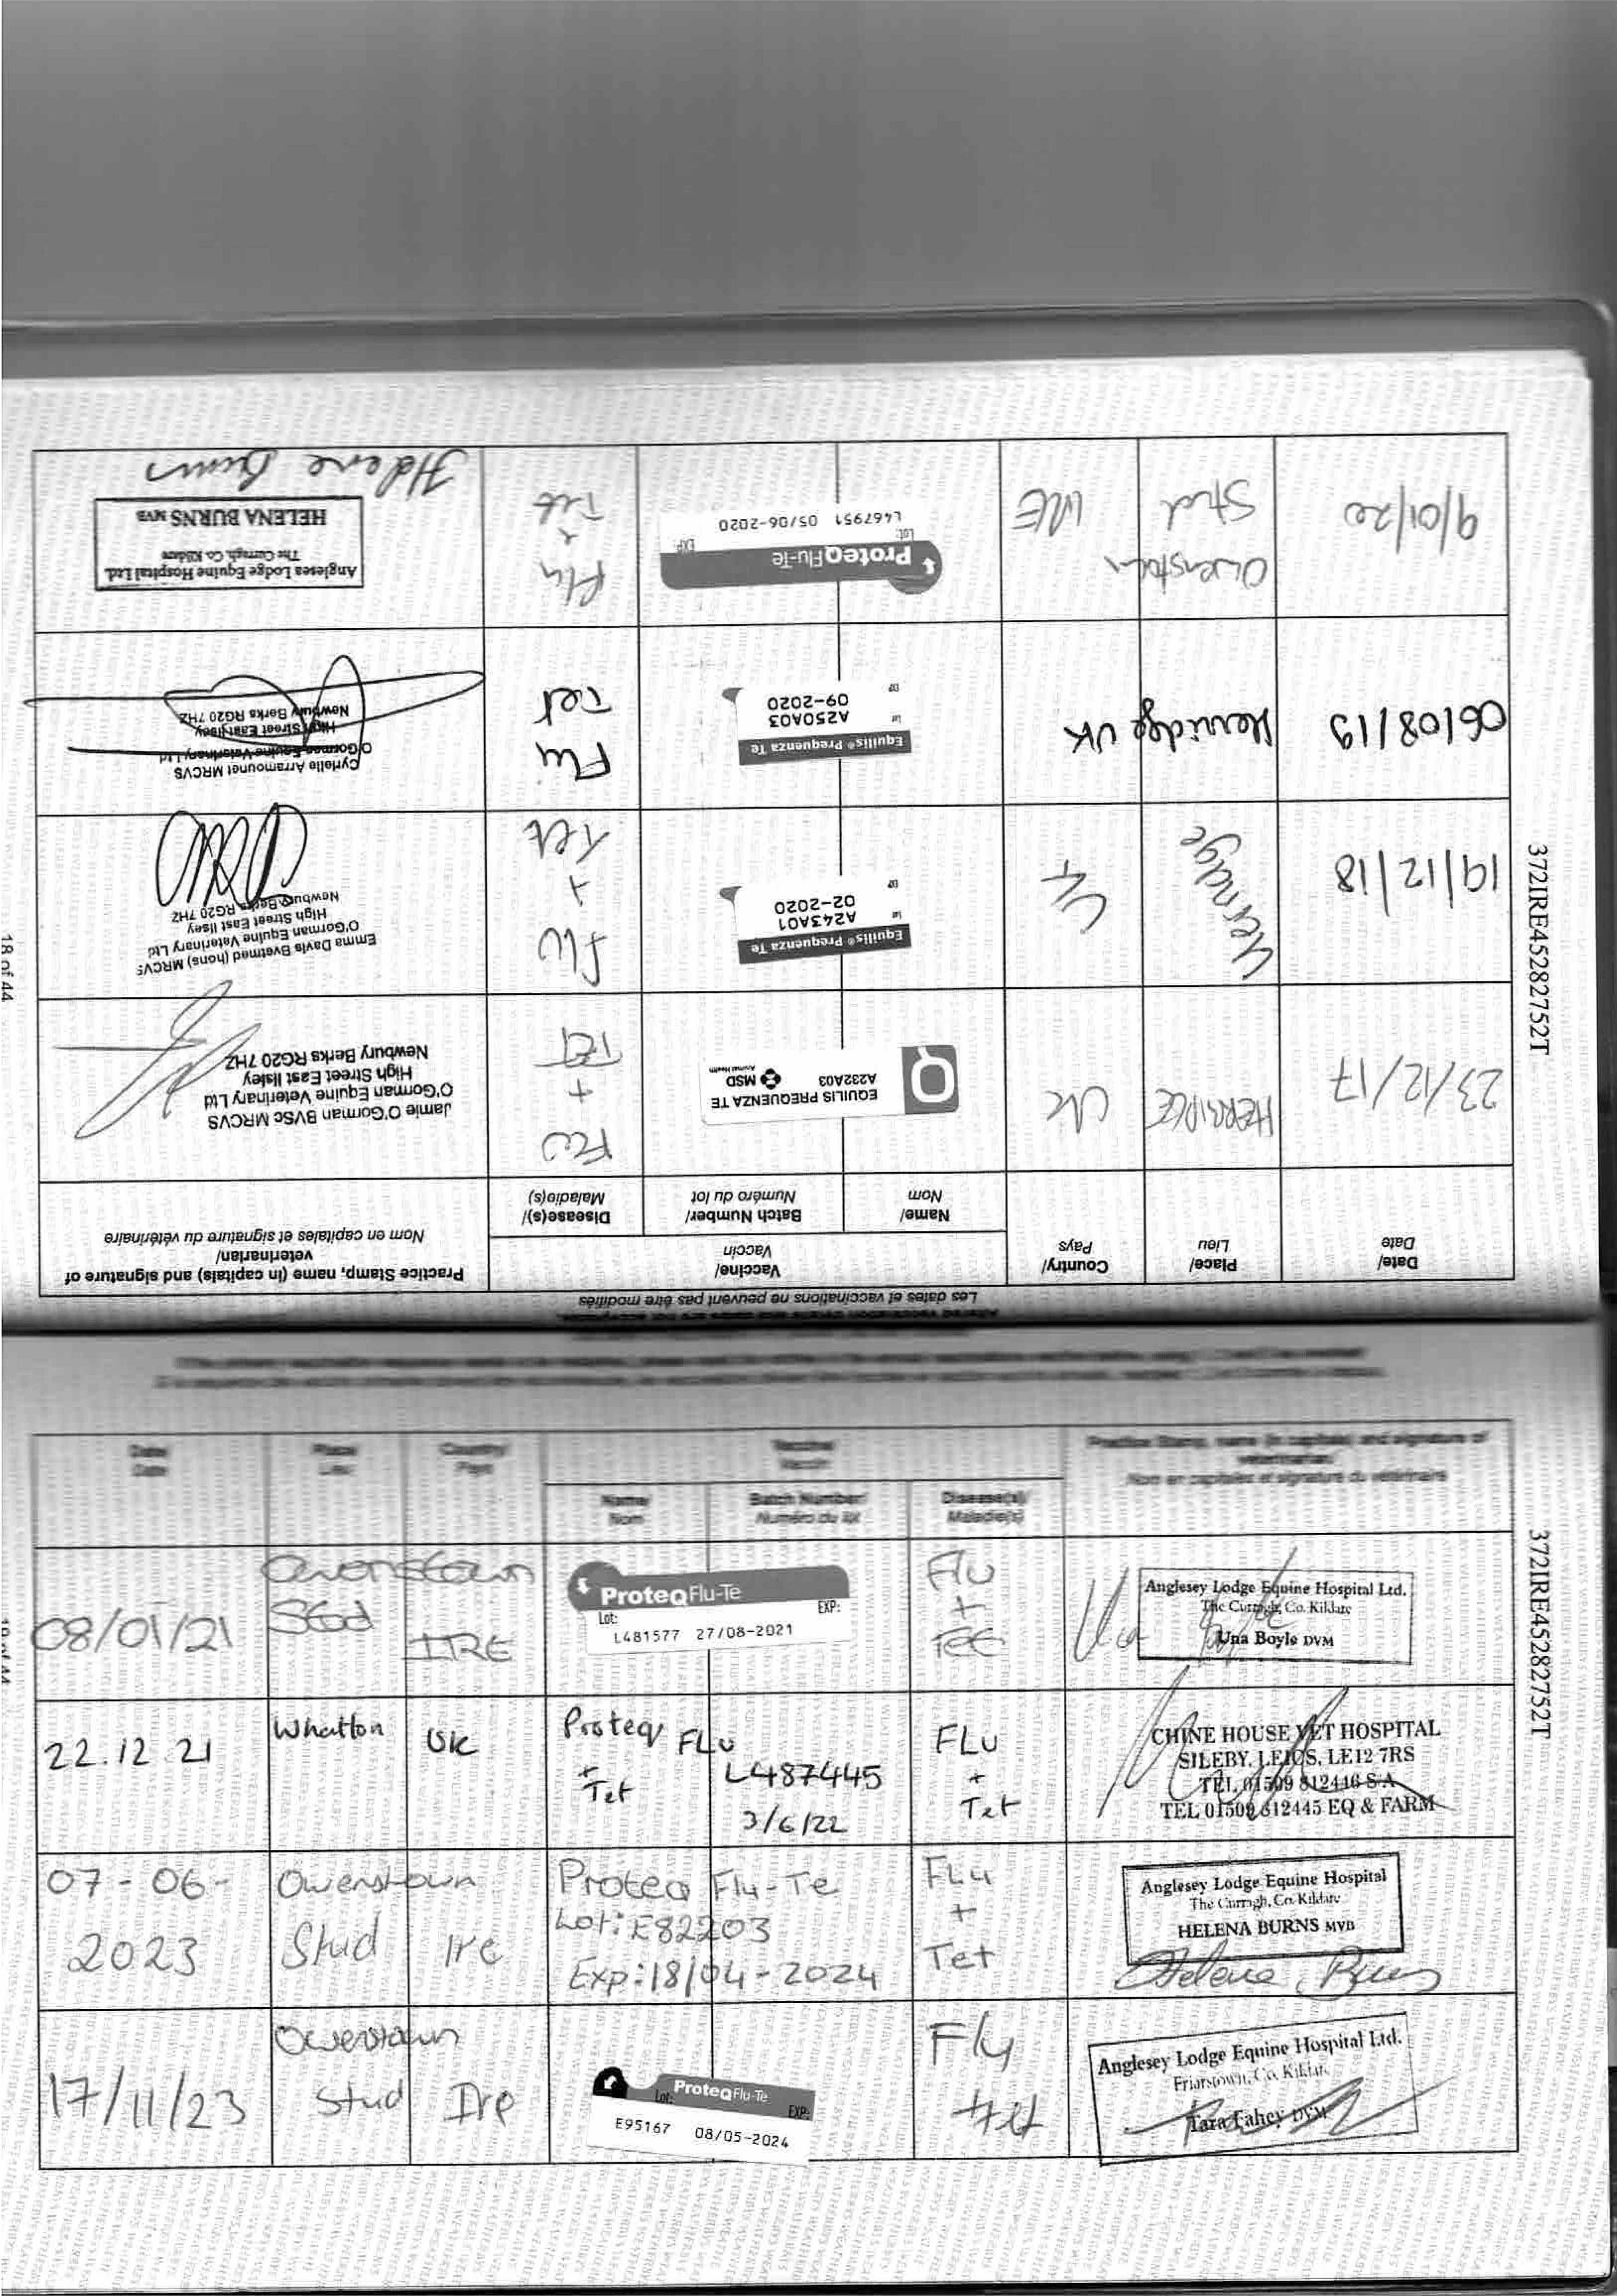 Les dates et vaccinations ne peuvent pas être modifiés
Date/
Date
Place/
Lieu
Country/
Pays
Vaccine/
Vaccin
Name/
Nom
Batch Number/
Numéro du lot
Disease(s)/
Maladie(s)
Practice Stamp, name (in capitals) and signature of
veterinarian/
Nom en capitales et signature du vétérinaire
23/12/17
HERRIDGE
UK
EQUILIS PREQUENZA TE
A232A03
MSD
Animal Health
FLU
+
TET
Jamie O'Gorman BVSc MRCVS
O'Gorman Equine Veterinary Ltd
High Street East Ilsley
Newbury Berks RG20 7HZ
19/12/18
UK
Equilis® Prequenza Te
Lot
A243A01
02-2020
EXP
FLU
+
Tet
Emma Davis Bvetmed (hons) MRCVS
O'Gorman Equine Veterinary Ltd
High Street East Ilsey
Newbury Berks RG20 7HZ
06/08/19
Herridge UK
Equilis® Prequenza Te
Lot
A250A03
09-2020
EXP
Flu
Tet
Cyrielle Arramounet MRCVS
O'Gorman Equine Veterinary Ltd
High Street East Ilsey
Newbury Berks RG20 7HZ
9/01/20
Owenstown
Stud
IRE
ProteqFlu-Te
Lot:
EXP:
L467951 05/06-2020
Flu
+
Tet
Anglesea Lodge Equine Hospital Ltd.
The Curragh, Co. Kildare
HELENA BURNS MVB
Helena Burns
372IRE45282752T
18 of 44
Date/
Date
Place/
Lieu
Country/
Pays
Vaccine/
Vaccin
Name/
Nom
Batch Number/
Numéro du lot
Disease(s)/
Maladie(s)
Practice Stamp, name (in capitals) and signature of
veterinarian/
Nom en capitales et signature du vétérinaire
08/01/21
Owenstown
Stud
IRE
ProteqFlu-Te
Lot:
EXP:
L481577 27/08-2021
Flu
+
Tet
Anglesey Lodge Equine Hospital Ltd.
The Curragh, Co. Kildare
Una Boyle DVM
22.12.21
Whatton
UK
Proteq FLu
+
Tet
L487445
3/6/22
FLu
+
Tet
CHINE HOUSE VET HOSPITAL
SILEBY, LEICS, LE12 7RS
TEL 01509 812446 S A
TEL 01509 812445 EQ & FARM
07-06-
2023
Owenstown
Stud
Ire
Proteq Flu-Te
Lot: E82203
Exp: 18/04-2024
FLu
+
Tet
Anglesey Lodge Equine Hospital
The Curragh, Co. Kildare
HELENA BURNS MVB
Helena Burns
17/11/23
Owenstown
Stud
Ire
ProteqFlu-Te
Lot:
EXP:
E95167 08/05-2024
Flu
+tet
Anglesey Lodge Equine Hospital Ltd.
Friarstown, Co. Kildare
Tara Fahey DVM
372IRE45282752T